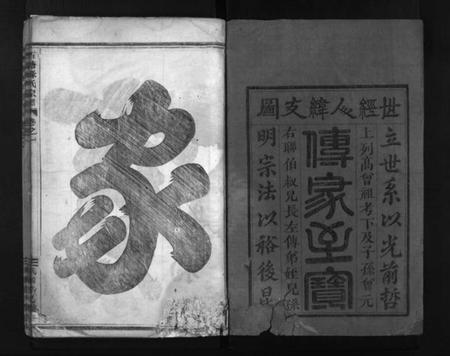 世經人緯支圖
立世系以光前哲
上列高曾祖考下及子孫曾元
傳家至寶
右聯伯叔兄長左傳弟姪兄孫
明宗法以裕後昆
家